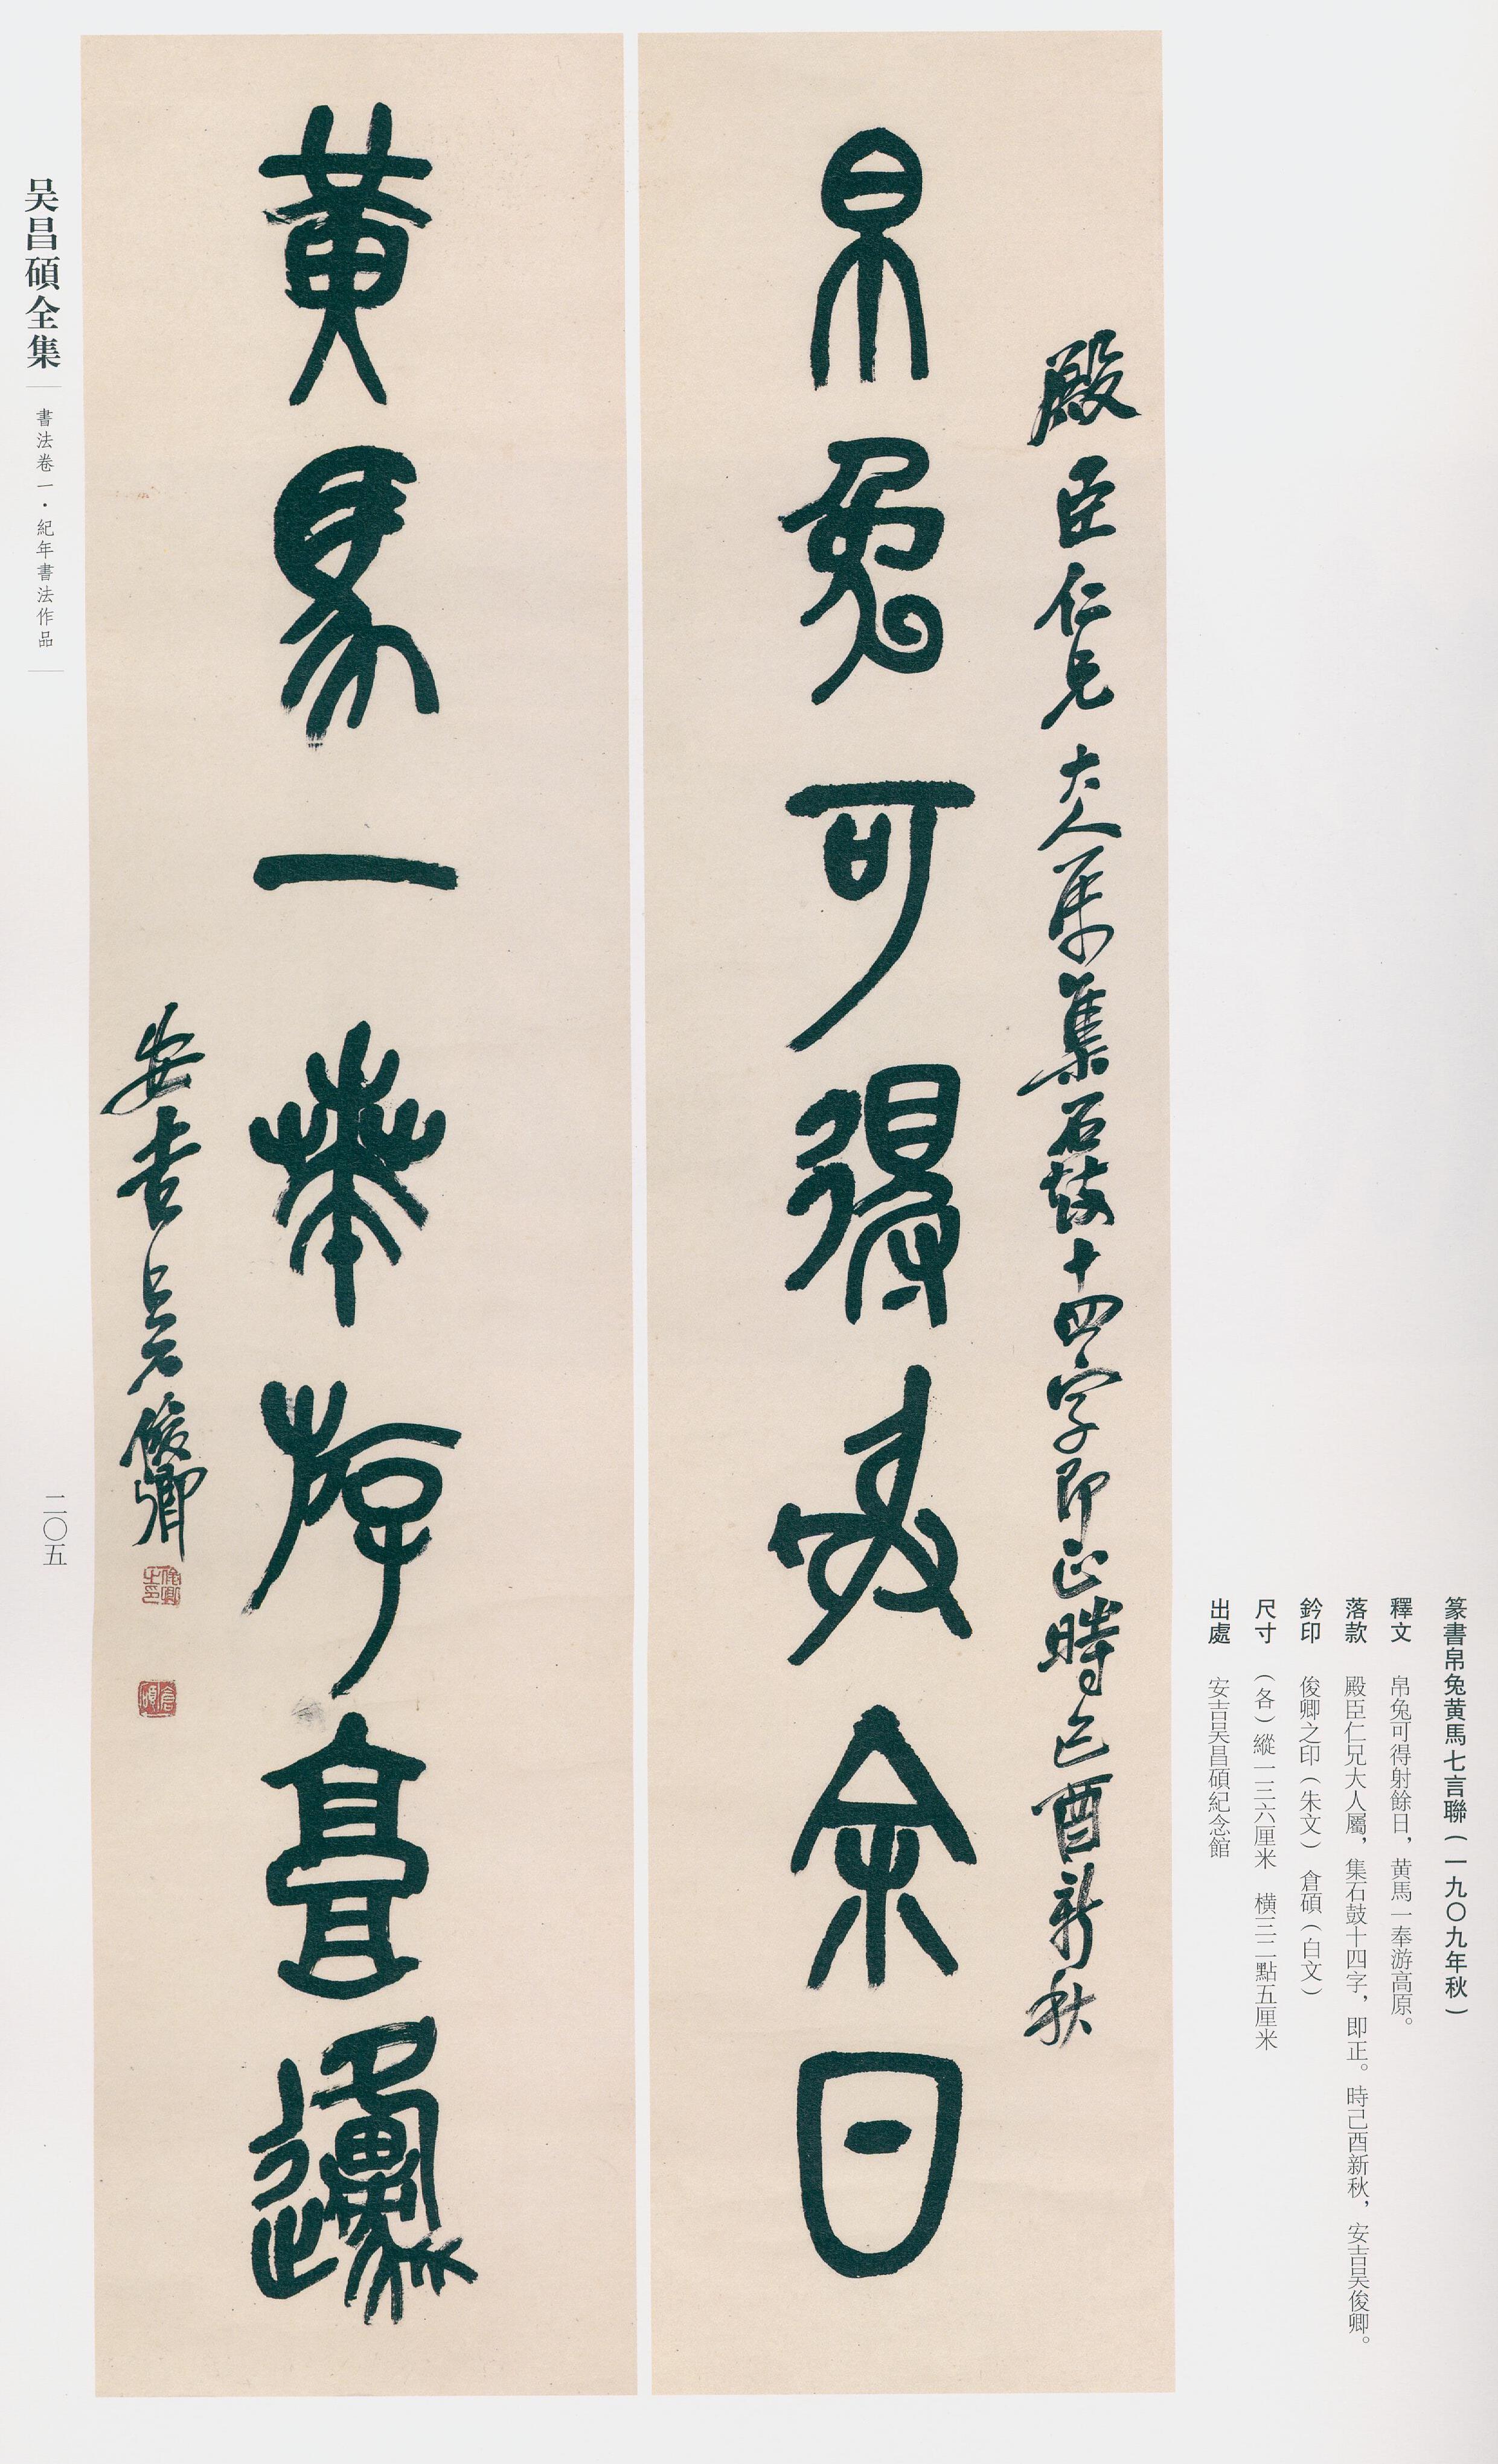 篆書帛兔黄馬七言聯（一九〇九年秋）
釋文　帛兔可得射餘日，黄馬一奉游高原。
落款　殿臣仁兄大人屬，集石鼓十四字，即正。時己酉新秋，安吉吴俊卿。
鈐印　俊卿之印（朱文）　倉碩（白文）
尺寸　（各）縱一三六厘米　横三二點五厘米
出處　安吉吴昌碩紀念館
殿臣仁兄大人屬集石鼓十四字即正時己酉新秋
帛兔可得射余日
黄馬一奉游高原
安吉吴俊卿
俊卿之印
倉碩
吴昌碩全集
書法卷一・紀年書法作品
二〇五